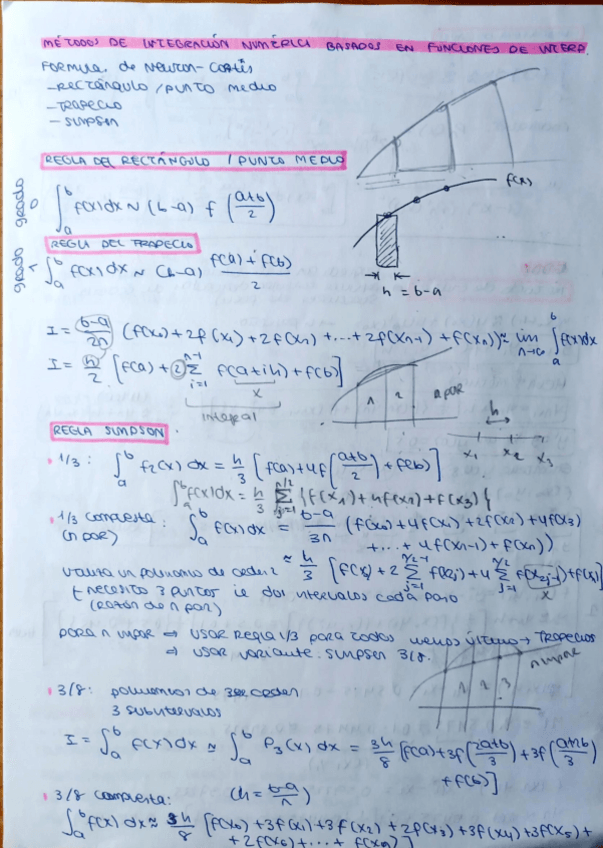 MÉTODOS DE INTEGRACIÓN NUMÉRICA BASADOS EN FUNCIONES DE INTERP.
FORMULA de NEWTON-COTES
- RECTÁNGULO / PUNTO MEDIO
- TRAPECIO
- SIMPSON
REGLA DEL RECTÁNGULO / PUNTO MEDIO
f(x)
grado 0
∫_a^b f(x)dx ≈ (b-a) f((a+b)/2)
h = b-a
REGLA DEL TRAPECIO
grado 1
∫_a^b f(x)dx ≈ (b-a) (f(a)+f(b))/2
I = (b-a)/2n (f(x₀)+2f(x₁)+2f(x₂)+...+2f(xₙ₋₁)+f(xₙ)) ≈ lim_{n→∞} ∫_a^b f(x)dx
I = h/2 [f(a)+2 Σ_{i=1}^{n-1} f(a+ih)+f(b)]
x
integral
1 2 n par
h
x₁ x₂ x₃
REGLA SIMPSON
1/3: ∫_a^b f₂(x) dx = h/3 [f(a)+4f((a+b)/2)+f(b)]
∫_a^b f(x)dx = h/3 Σ_{j=1}^{n/2} {f(x₁)+4f(x₂)+f(x₃)}
1/3 compuesta: ∫_a^b f(x)dx = (b-a)/3n (f(x₀)+4f(x₁)+2f(x₂)+4f(x₃)
(n par)
+...+4f(xₙ₋₁)+f(xₙ))
utiliza un polinomio de orden 2 ≈ h/3 [f(x₀)+2 Σ_{j=1}^{n/2-1} f(x₂ⱼ)+4 Σ_{j=1}^{n/2} f(x₂ⱼ₋₁)+f(xₙ)]
x
(necesito 3 puntos ie dos intervalos cada paso
(razón de n par)
para n impar ⇒ usar Regla 1/3 para todos menos último → Trapecios
⇒ usar variante. SIMPSON 3/8.
n impar
1 2 3
3/8: polinomios de 3er orden
3 subintervalos
I = ∫_a^b f(x)dx ≈ ∫_a^b P₃(x) dx = 3h/8 [f(a)+3f((2a+b)/3)+3f((a+2b)/3)
+f(b)]
3/8 compuesta: (h = (b-a)/n)
∫_a^b f(x)dx ≈ 3h/8 [f(x₀)+3f(x₁)+3f(x₂)+2f(x₃)+3f(x₄)+3f(x₅)+
+2f(x₆)+...+f(xₙ)]